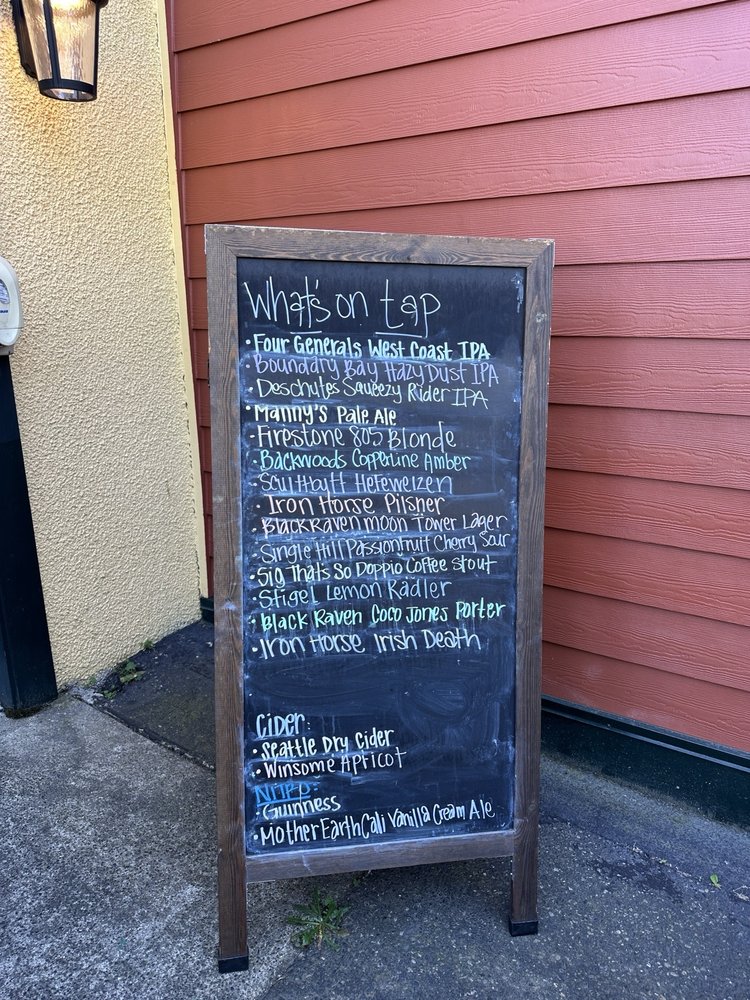 What's on tap
• Four Generals West Coast IPA
• Boundary Bay Hazy Dust IPA
• Deschutes Squeezy Rider IPA
• Manny's Pale Ale
• Firestone 805 Blonde
• Backwoods Copperline Amber
• Scuttlbutt Hefeweizen
• Iron Horse Pilsner
• Black Raven Moon Tower Lager
• Single Hill Passionfruit Cherry Sour
• Sig That's So Doppio Coffee Stout
• Stigel Lemon Radler
• Black Raven Coco Jones Porter
• Iron Horse Irish Death
Cider:
• Seattle Dry Cider
• Winsome Apricot
Nitro:
• Guinness
• Mother Earth Cali Vanilla Cream Ale